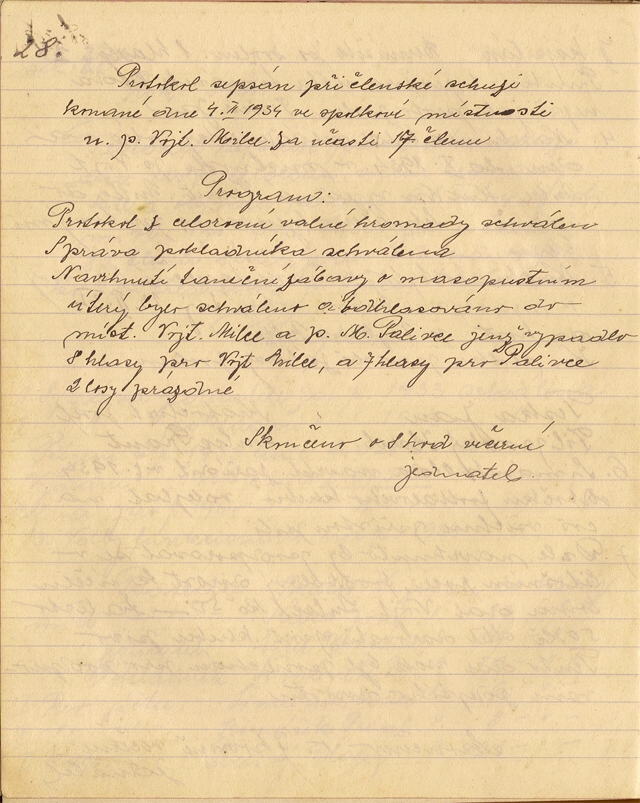 28.
Protokol sepsán při členské schuzi
konané dne 4. II 1934 ve spolkové místnosti
u p. Vojt. Milce za učasti 17 členu
Program:
Protokol z celoroční valné hromady schválen
Správa pokladníka schválena
Navrhnutí taneční zábavy o masopustním
úterý bylo schváleno a odhlasováno do
míst. Vojt. Milce a p. M. Palivce jenž vypadlo
8 hlasy pro Vojt Milce, a 7 hlasy pro Palivce
2 losy prazdné
Skončeno o 8 hod večerní
jednatel.